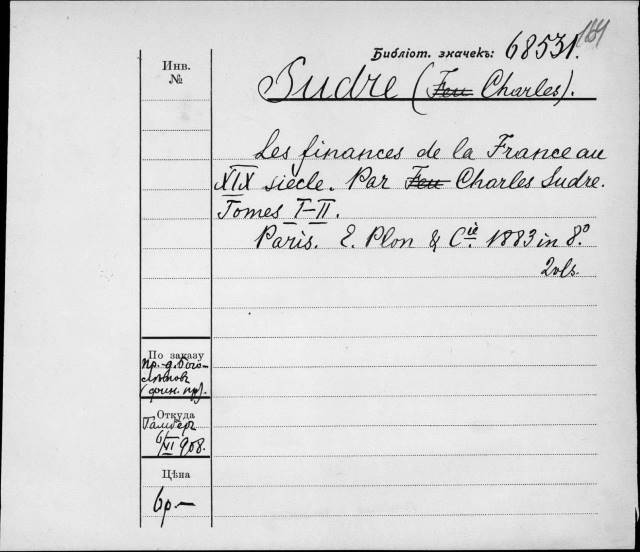 Библіот. значекъ: 68531.
Инв.
№
Sudre (Feu Charles).
Les finances de la France au
XIX siècle. Par Feu Charles Sudre.
Tomes I-II.
Paris. E. Plon & Cie. 1883 in 8.º
2 vls.
По заказу
пр.-д. Бого-
лѣповъ
(фин. пр).
Откуда
6/VI 908.
Цѣна
6р.—